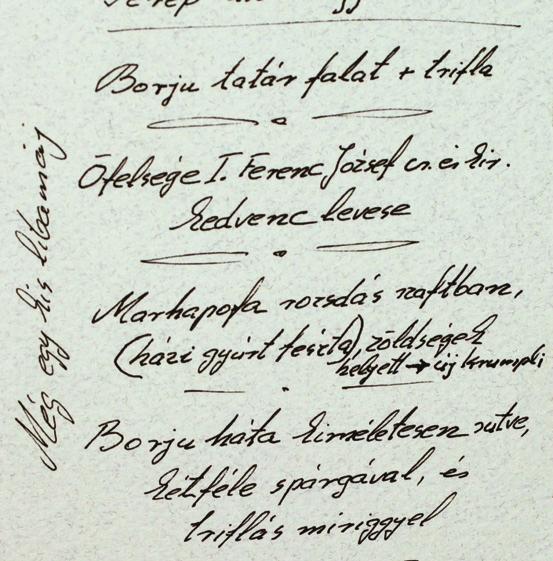 Borju tatár falat + trifla
Őfelsége I. Ferenc József cs. és kir.
kedvenc levese
Marhapofa rozsdás szaftban,
(házi gyúrt tészta), zöldségek
helyett → új krumpli
Borju háta kiméletesen sütve,
kétféle spárgával, és
triflás miriggyel
Még egy kis libamáj